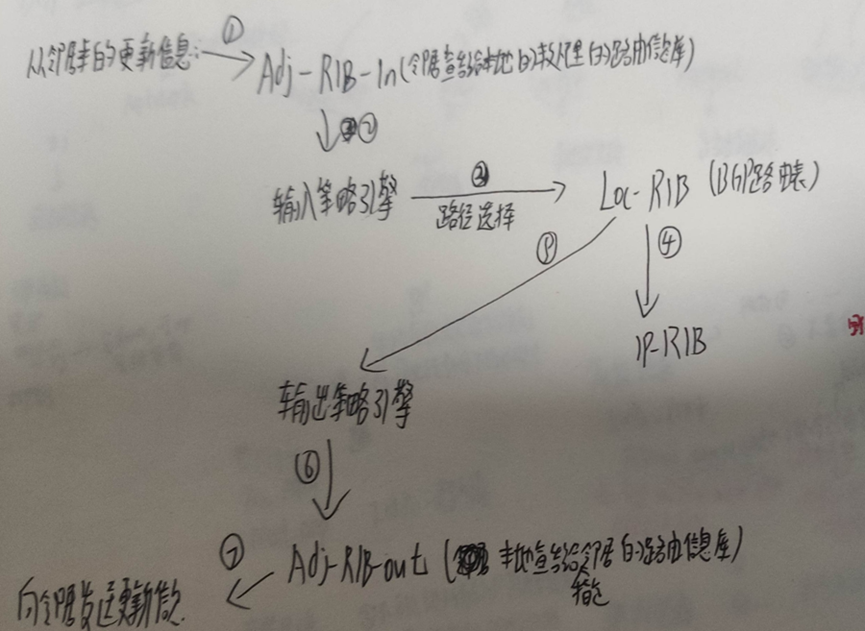 从邻居来的更新信息: ① Adj-RIB-In(邻居宣告给本地的未处理的路由信息库)
②
输入策略引擎 ③ 路径选择 Loc-RIB (BGP路由表)
⑤ ④
IP-RIB
输出策略引擎
⑥
⑦ Adj-RIB-out ( 本地宣告给邻居的路由信息库)
指定
向邻居发送更新信息